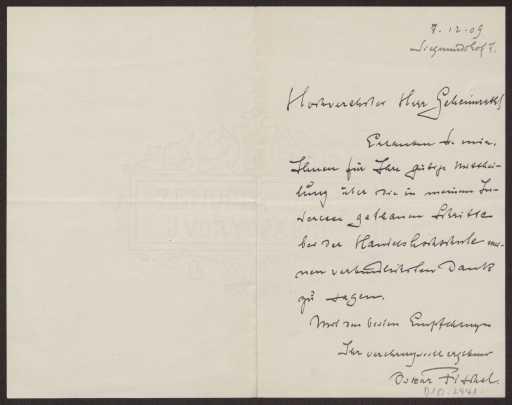 7.12.09
Siegmundshof 7.
Hochverehrter Herr Geheimrath!
Erlauben Sie mir,
Ihnen für Ihre gütige Mitthei-
lung über die in meinem In-
teresse gethanen Schritte
bei der Handelshochschule mei-
nen verbindlichsten Dank
zu sagen.
Mit den besten Empfehlungen
Ihr verehrungsvoll ergebener
Oskar Fischel.